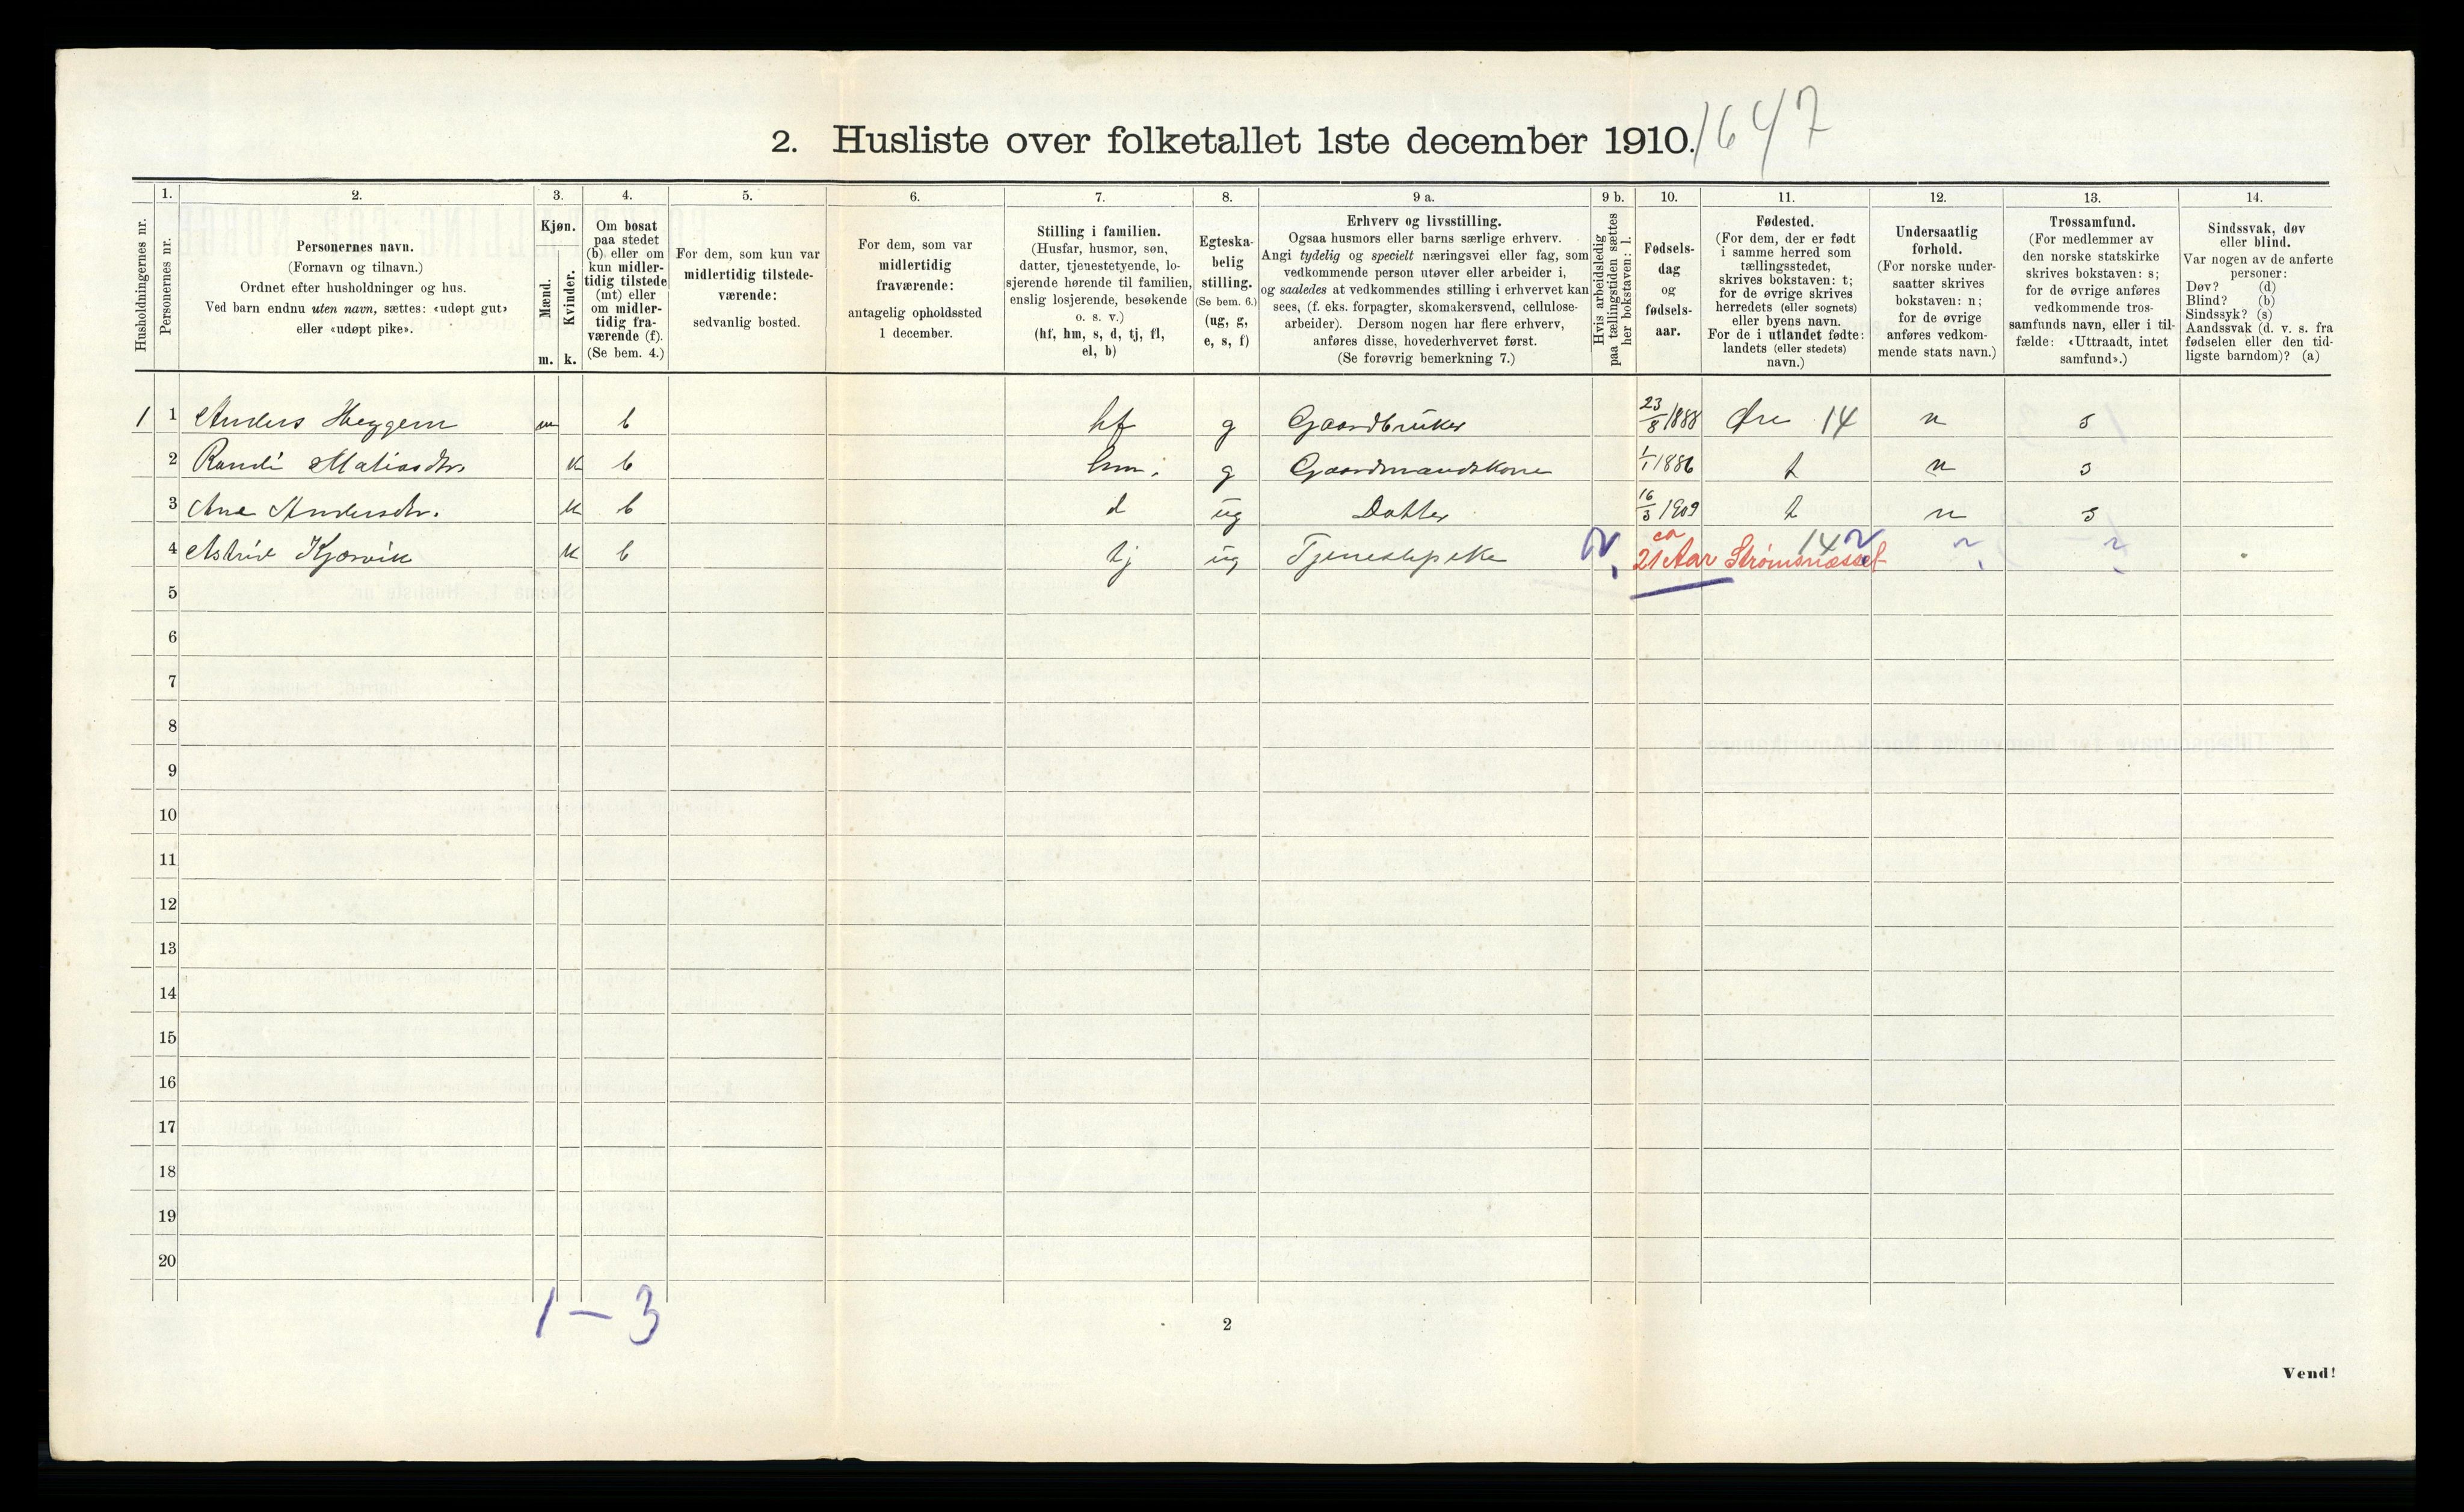 2. Husliste over folketallet 1ste december 1910. 1647
Husholdningernes nr.
1. Personernes nr.
2. Personernes navn. (Fornavn og tilnavn.) Ordnet efter husholdninger og hus. Ved barn endnu uten navn, sættes: «udøpt gut» eller «udøpt pike».
3. Kjøn. Mænd. m. Kvinder. k.
4. Om bosat paa stedet (b) eller om kun midlertidig tilstede (mt) eller om midlertidig fraværende (f). (Se bem. 4.)
5. For dem, som kun var midlertidig tilstedeværende: sedvanlig bosted.
6. For dem, som var midlertidig fraværende: antagelig opholdssted 1 december.
7. Stilling i familien. (Husfar, husmor, søn, datter, tjenestetyende, losjerende hørende til familien, enslig losjerende, besøkende o. s. v.) (hf, hm, s, d, tj, fl, el, b)
8. Egteskabelig stilling. (Se bem. 6.) (ug, g, e, s, f)
9 a. Erhverv og livsstilling. Ogsaa husmors eller barns særlige erhverv. Angi tydelig og specielt næringsvei eller fag, som vedkommende person utøver eller arbeider i, og saaledes at vedkommendes stilling i erhvervet kan sees, (f. eks. forpagter, skomakersvend, cellulosearbeider). Dersom nogen har flere erhverv, anføres disse, hovederhvervet først. (Se forøvrig bemerkning 7.)
9 b. Hvis arbeidsledig paa tællingstiden sættes her bokstaven: l.
10. Fødselsdag og fødselsaar.
11. Fødested. (For dem, der er født i samme herred som tællingsstedet, skrives bokstaven: t; for de øvrige skrives herredets (eller sognets) eller byens navn. For de i utlandet fødte: landets (eller stedets) navn.)
12. Undersaatlig forhold. (For norske undersaatter skrives bokstaven: n; for de øvrige anføres vedkommende stats navn.)
13. Trossamfund. (For medlemmer av den norske statskirke skrives bokstaven: s; for de øvrige anføres vedkommende trossamfunds navn, eller i tilfælde: «Uttraadt, intet samfund».)
14. Sindssvak, døv eller blind. Var nogen av de anførte personer: Døv? (d) Blind? (b) Sindssyk? (s) Aandssvak (d. v. s. fra fødselen eller den tidligste barndom)? (a)
1 1 Anders Heggem m b hf g Gaardbruker 23/8 1888 Øre 14 n s
2 Randi Matiasdtr. k b hm. g Gaardmandskone 1/1 1886 t n s
3 Ane Andersdtr. k b d ug Datter 16/3 1909 t n s
4 Astrid Kjørvik k b tj ug Tjenestepike ca 21 Aar Strømsnæsset 14
5
6
7
8
9
10
11
12
13
14
15
16
17
18
19
20
1 - 3
2
Vend!